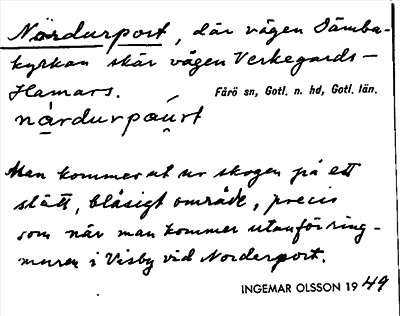 Nördurport, där vägen Dämba-
kyrkan skär vägen Verkegards-
Hamars.
Fårö sn, Gotl. n. hd, Gotl. län.
närdurpäurt
Man kommer ut ur skogen på ett
slätt, blåsigt område, precis
som när man kommer utanför ring-
muren i Visby vid Norderport.
INGEMAR OLSSON 1949